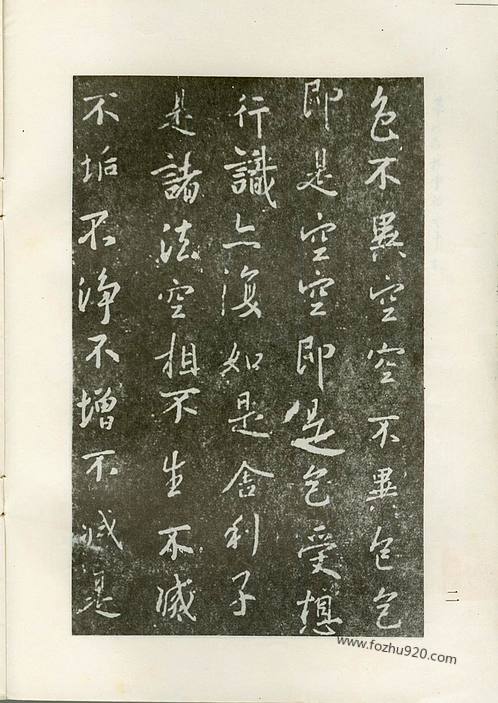 色不異空空不異色色
即是空空即是色受想
行識亦復如是舍利子
是諸法空相不生不滅
不垢不净不增不減是
二
www.fozhu920.com